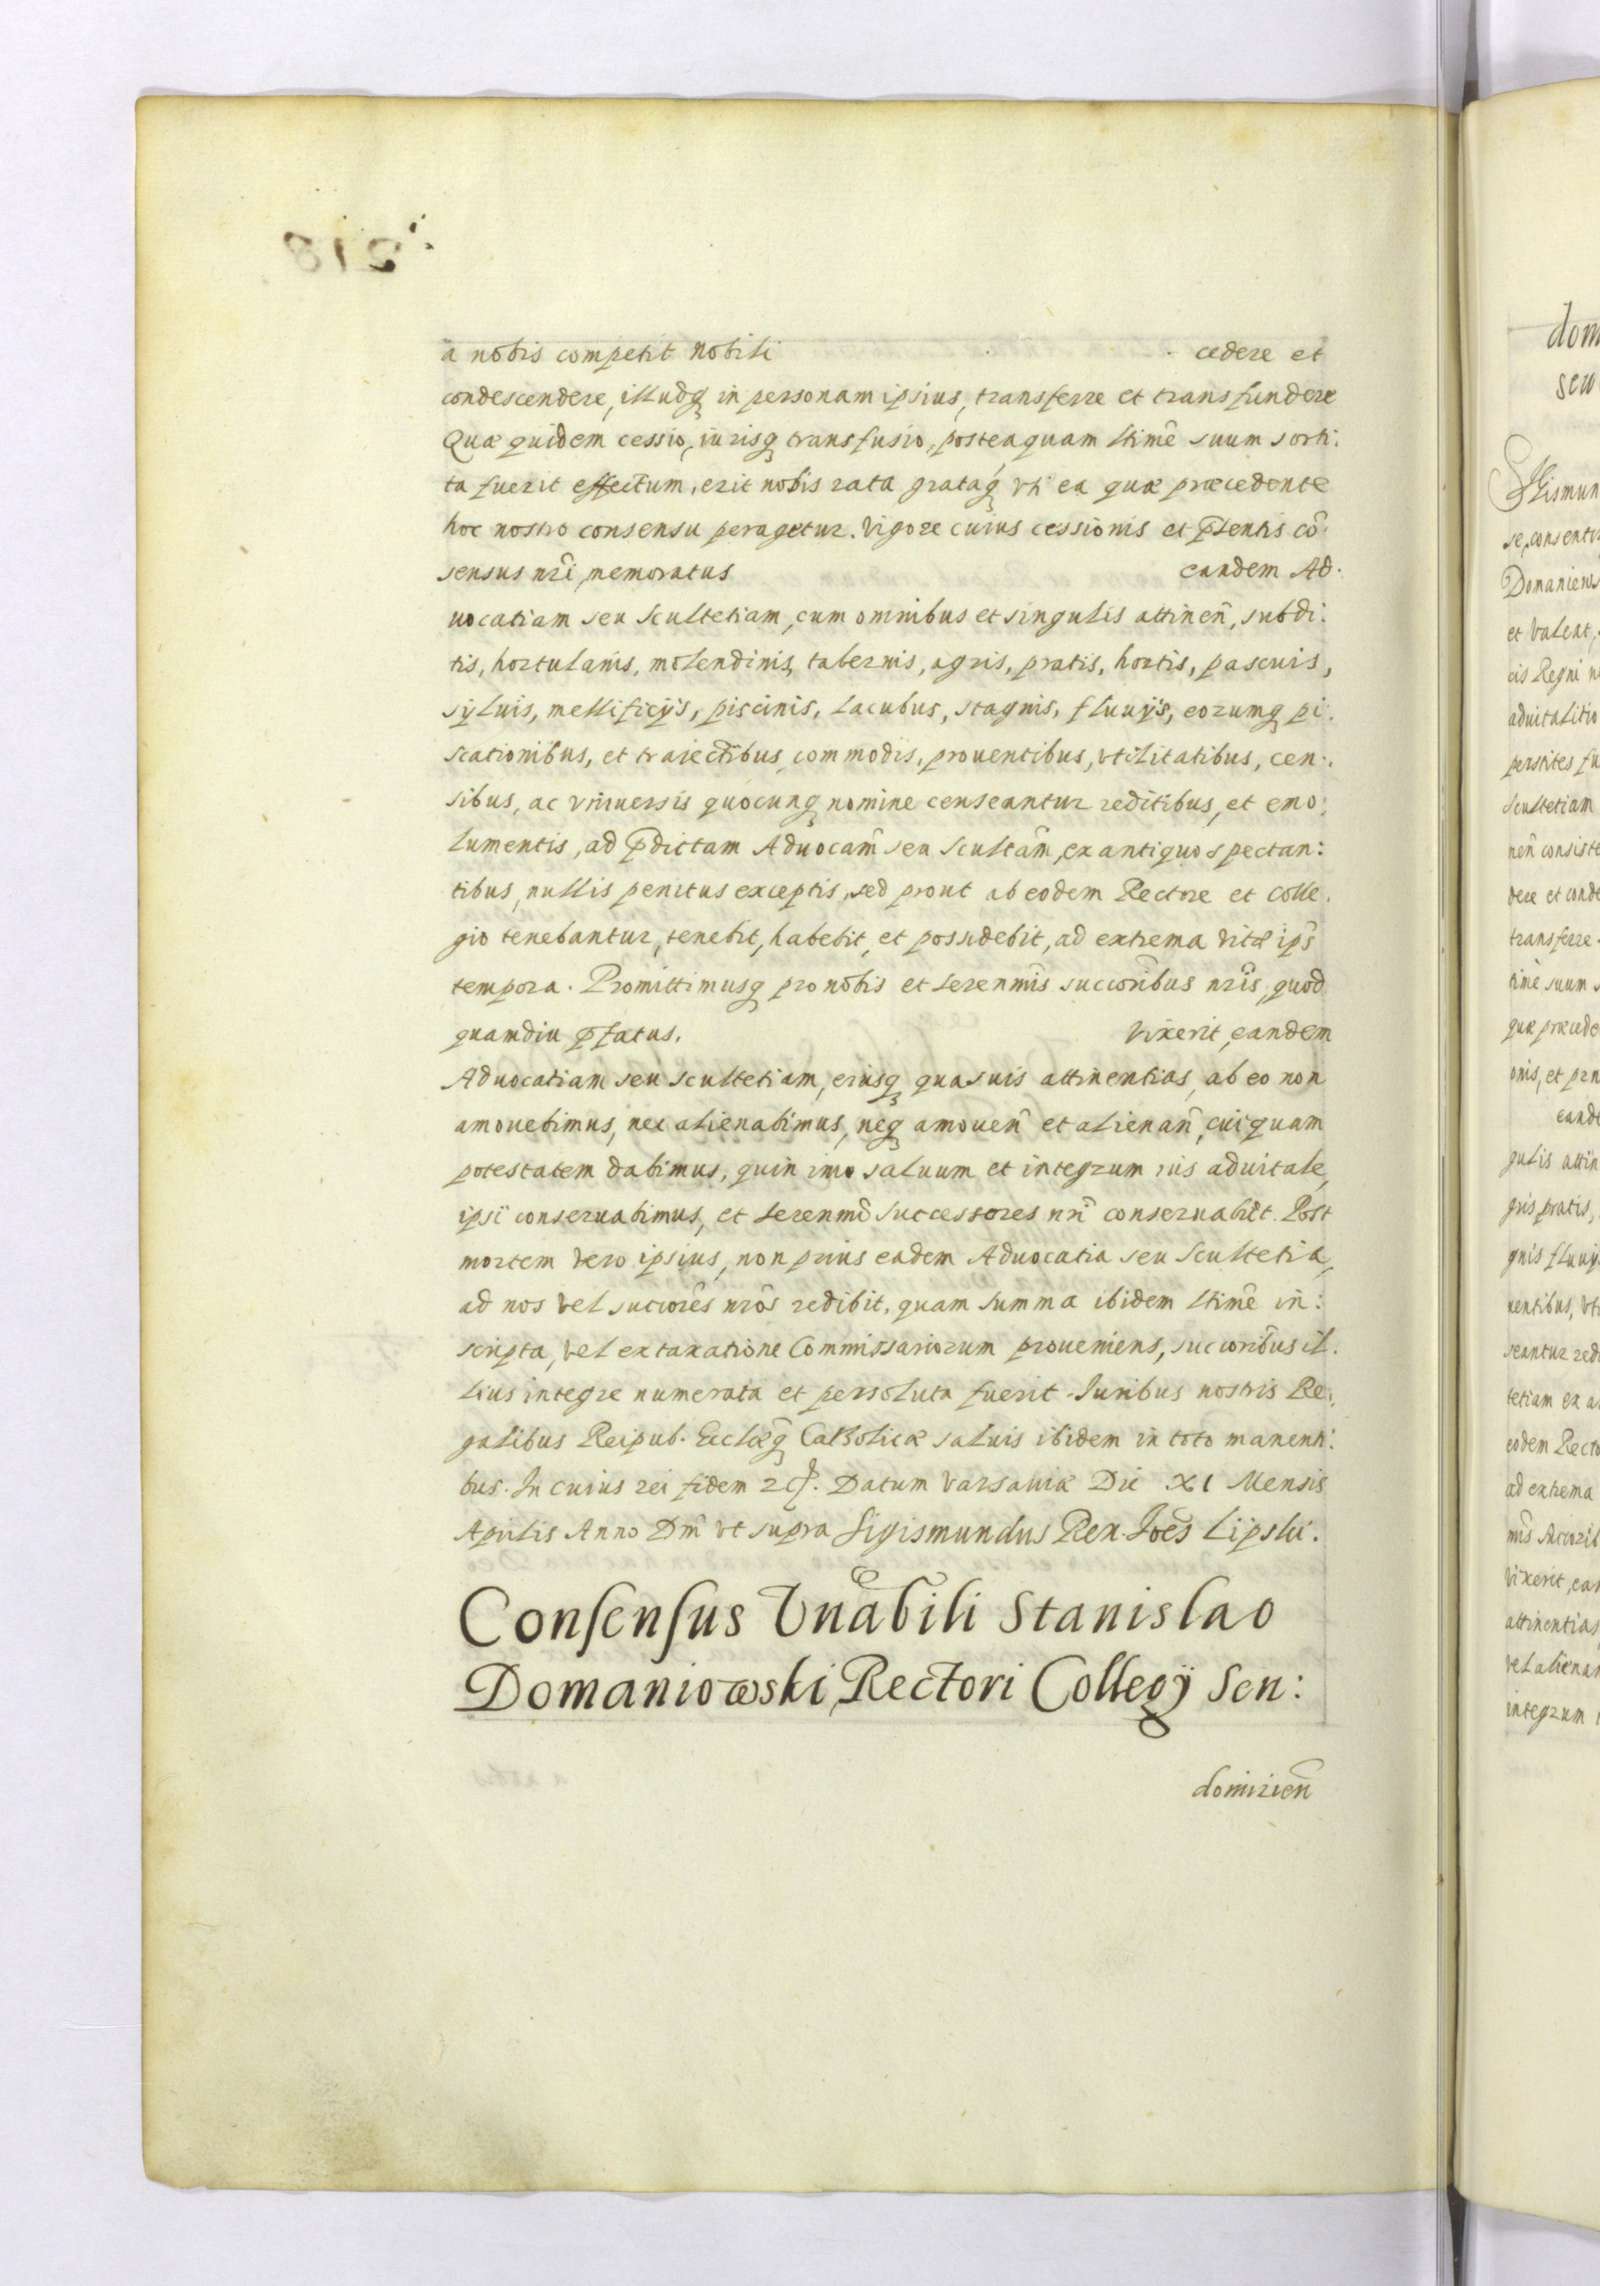 218
a nobis competit nobili cedere et
condescendere, illudq́ in personam ipsius, transferre et transfundere
Quæ quidem cessio, iurisq́ transfusio, posteaquam ltimê suum sorti:
ta fuerit effectum, erit nobis rata grataq́ vti ea quæ præcedente
hoc nostro consensu peragetur. Vigore cuius cessionis et p̃sentis cõ:
sensus nri, memoratus eandem Ad:
uocatiam seu Scultetiam, cum omnibus et singulis attineñ, subdi:
tis, hortulanis, molendinis, tabernis, agris, pratis, hortis, pascuis,
syluis, mellificijs, piscinis, lacubus, stagnis, fluuijs, eorumq́ pi:
scationibus, et traiectibus, commodis, prouentibus, vtilitatibus, cen:
sibus, ac vniuersis quocunq́ nomine censeantur reditibus, et emo:
lumentis, ad p̃dictam Aduocam̃ seu Scultam̃, ex antiquo spectan:
tibus, nullis penitus exceptis, sed prout ab eodem Rectore et Colle:
gio tenebantur, tenebit, habebit, et possidebit, ad extrema vitæ ips̃
tempora. Promittimusq́ pro nobis et serenm̃is succoribus nris, quod
quamdiu p̃fatus. vixerit, eandem
Aduocatiam seu scultetiam, eiusq́ quasuis attinentias, ab eo non
amouebimus, nec alienabimus, neq́ amoueñ et alienañ, cuiquam
potestatem dabimus, quin imo saluum et integrum ius aduitale,
ipsi conseruabimus, et serenm̃i successores nri conseruabũt. Post
mortem vero ipsius, non prius eadem Aduocatia seu Scultetia,
ad nos vel succores nros redibit, quam summa ibidem ltimê in:
scripta, vel ex taxatione Commissariorum proueniens, succoribus il:
lius integre numerata et persoluta fuerit. Iuribus nostris Re:
galibus Reipub. Ecclæq́ Catholicæ saluis ibidem in toto manenti:
bus. In cuius rei fidem
Datum Varsauiæ Die XI Mensis
Aprilis Anno Dm̃ vt supra Sigismundus Rex. Ioes Lipski.
Consensus Vnabili Stanislao
Domaniowski, Rectori Collegÿ Sen:
domirieñ